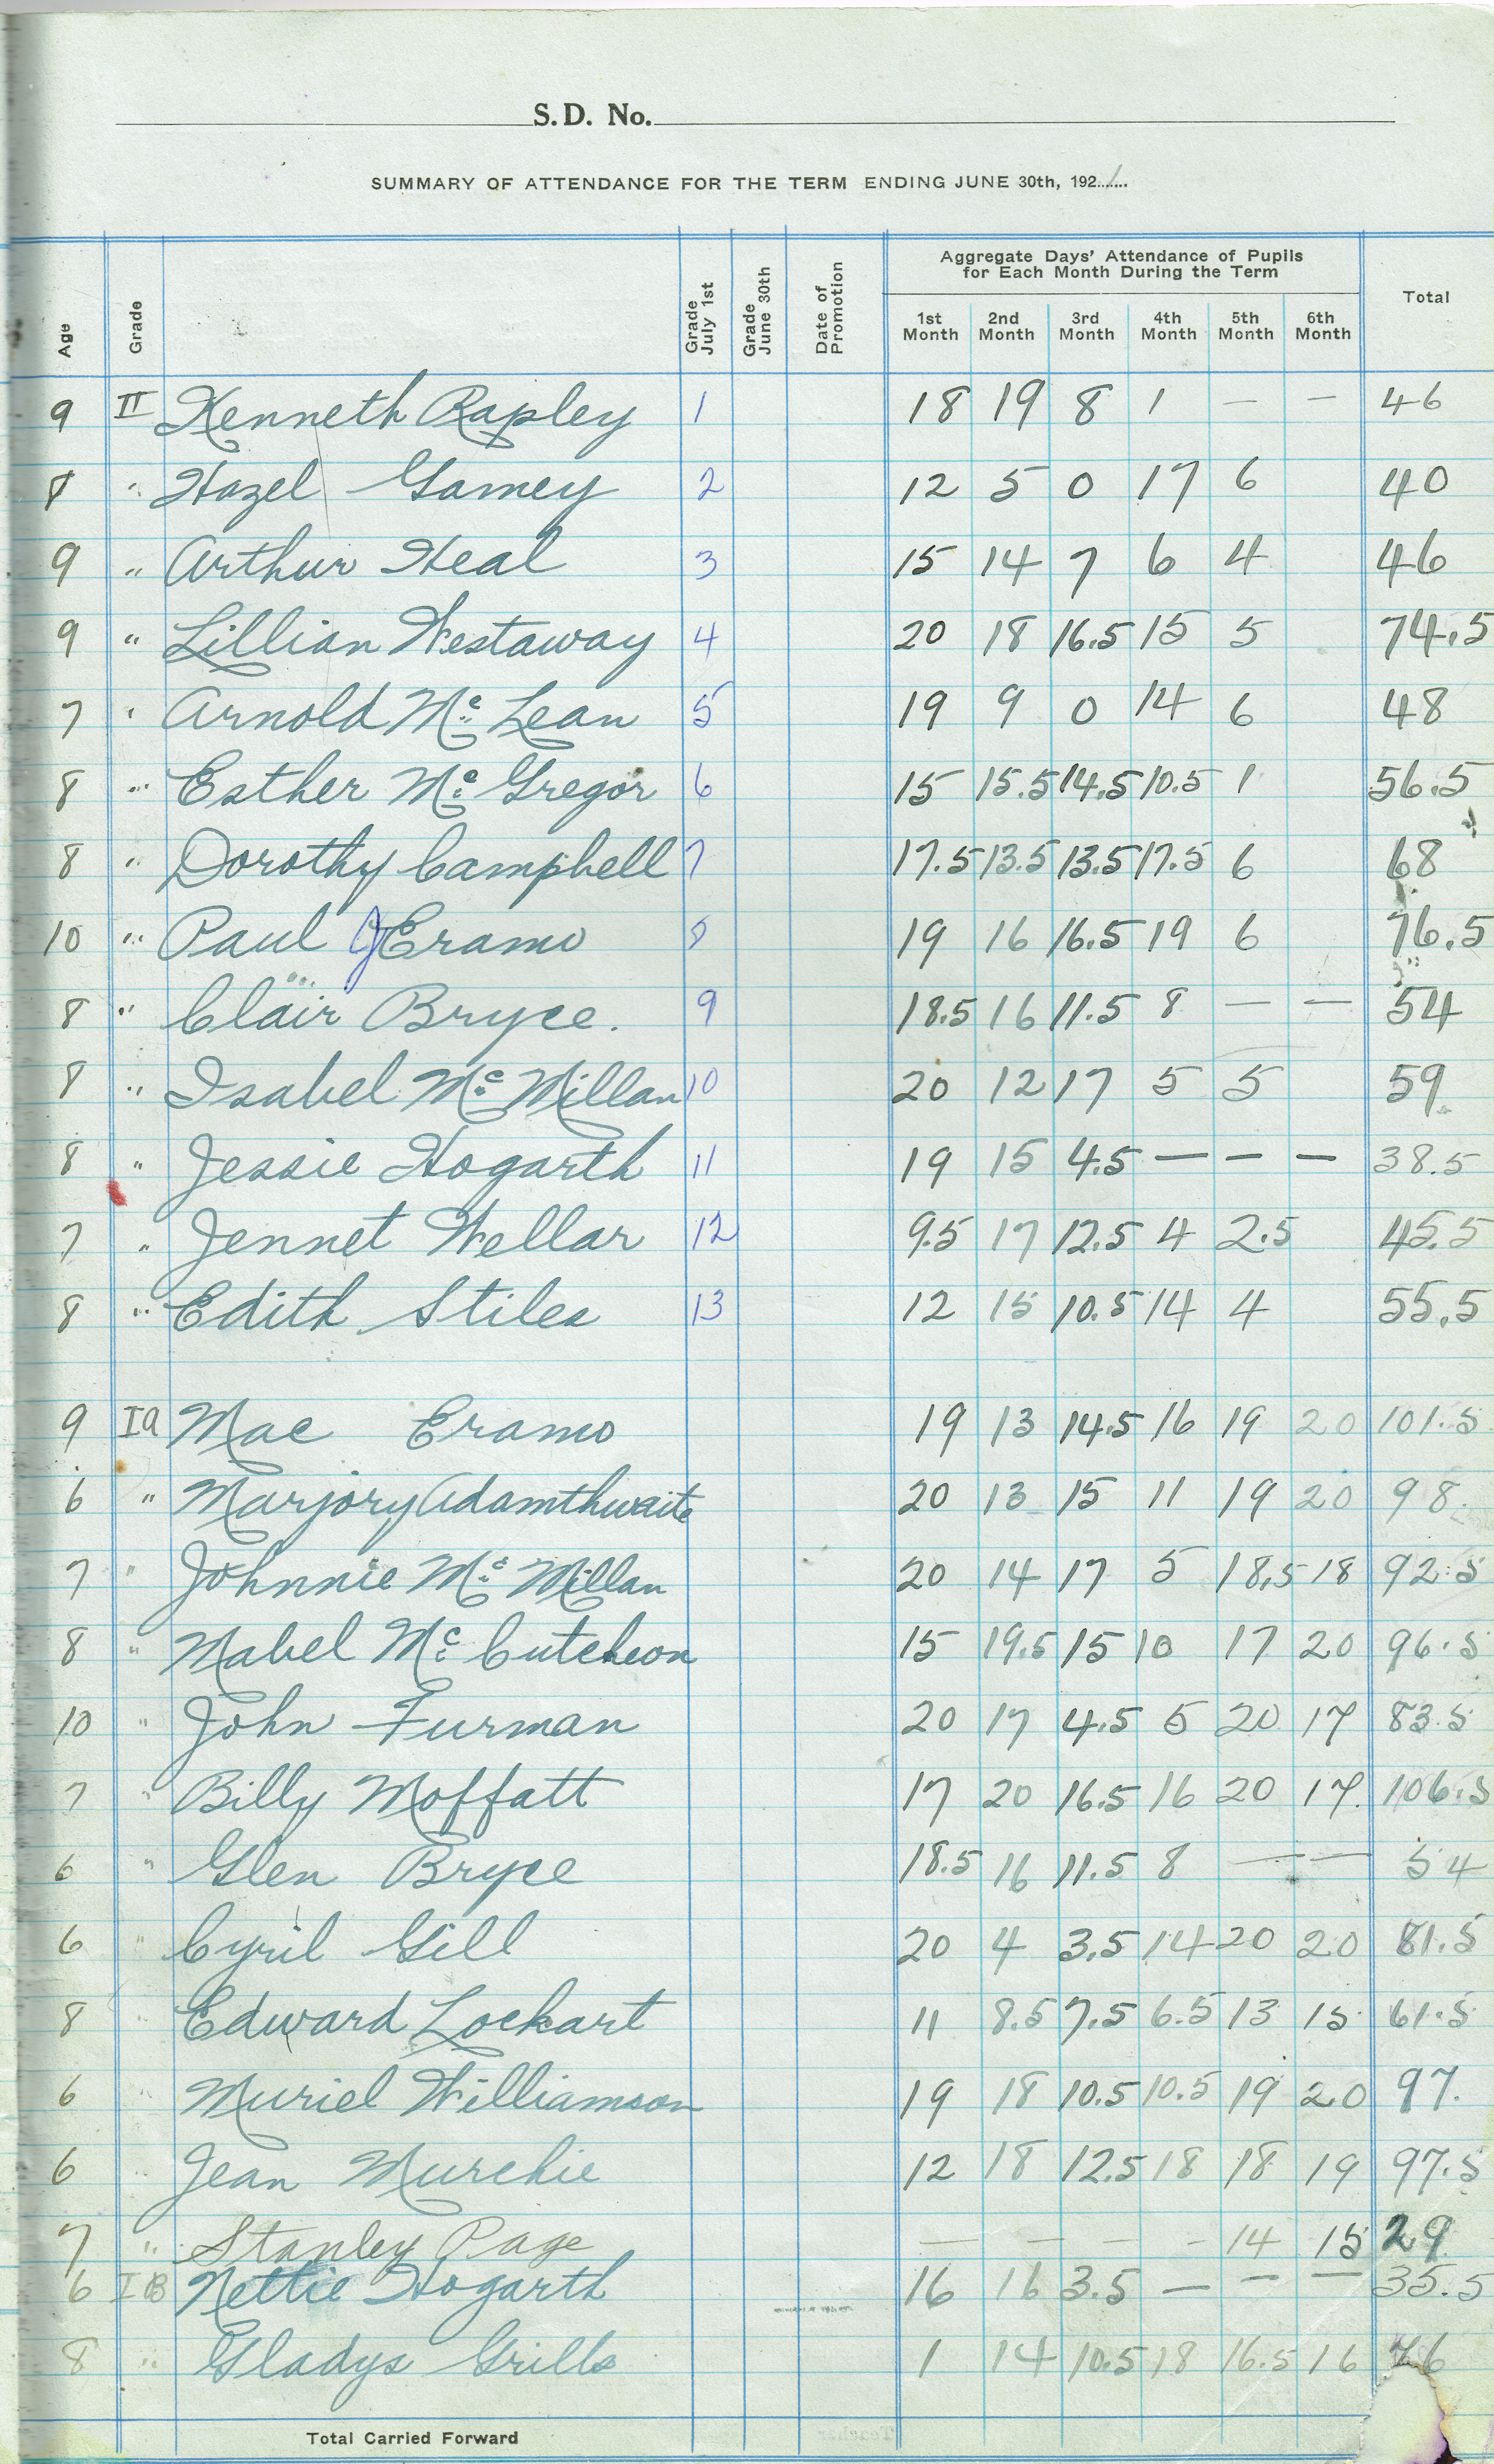 S.D. No.
SUMMARY OF ATTENDANCE FOR THE TERM ENDING JUNE 30th, 1921
Age Grade Grade July 1st Grade June 30th Date of Promotion Aggregate Days' Attendance of Pupils for Each Month During the Term Total
1st Month 2nd Month 3rd Month 4th Month 5th Month 6th Month
9 II Kenneth Rapley 1 18 19 8 1 — — 46
8 " Hazel Gamey 2 12 5 0 17 6 40
9 " Arthur Heal 3 15 14 7 6 4 46
9 " Lillian Westaway 4 20 18 16.5 15 5 74.5
7 " Arnold Mc Lean 5 19 9 0 14 6 48
8 " Esther Mc Gregor 6 15 15.5 14.5 10.5 1 56.5
8 " Dorothy Campbell 7 17.5 13.5 13.5 17.5 6 68
10 " Paul J Eramo 8 19 16 16.5 19 6 76.5
8 " Clair Bryce. 9 18.5 16 11.5 8 — — 54
8 " Isabel Mc Millan 10 20 12 17 5 5 59
8 " Jessie Hogarth 11 19 15 4.5 — — — 38.5
7 " Jennet Wellar 12 9.5 17 12.5 4 2.5 45.5
8 " Edith Stiles 13 12 15 10.5 14 4 55.5
9 Ia Mae Eramo 19 13 14.5 16 19 20 101.5
6 " Marjory Adamthwaite 20 13 15 11 19 20 98.
7 " Johnnie Mc Millan 20 14 17 5 18.5 18 92.5
8 " Mabel Mc Cutcheon 15 19.5 15 10 17 20 96.5
10 " John Furman 20 17 4.5 5 20 17 83.5
7 " Billy Moffatt 17 20 16.5 16 20 17. 106.5
6 " Glen Bryce 18.5 16 11.5 8 — — 54
6 " Cyril Gill 20 4 3.5 14 20 20 81.5
8 " Edward Lockart 11 8.5 7.5 6.5 13 15 61.5
6 " Muriel Williamson 19 18 10.5 10.5 19 20 97.
6 " Jean Murchie 12 18 12.5 18 18 19 97.5
7 " Stanley Page — — — — 14 15 29
6 IB Nettie Hogarth 16 16 3.5 — — — 35.5
8 " Gladys Grills 1 14 10.5 18 16.5 16 76
Total Carried Forward